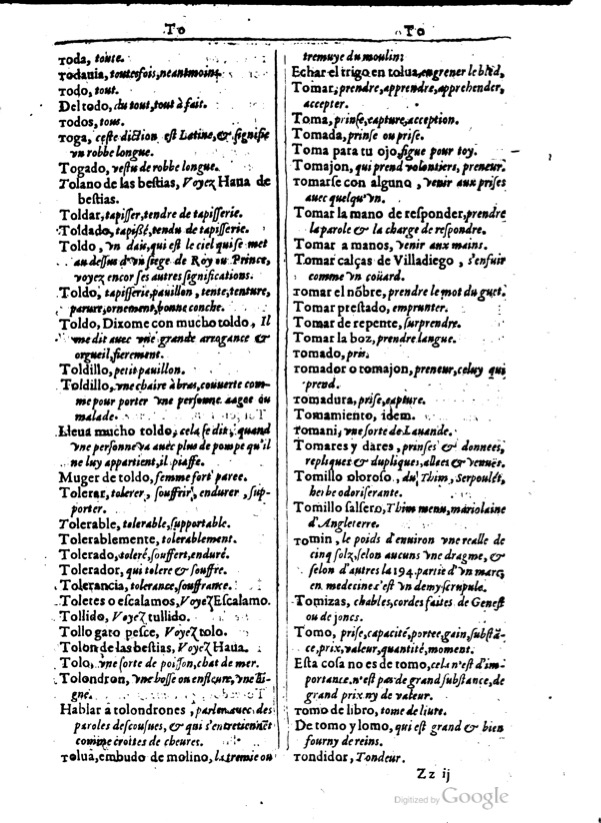 To
Toda, toute.
Todauia, toutesfois, neantmoins.
Todo, tout.
Del todo, du tout, tout à fait.
Todos, tous.
Toga, ceste diction est Latine, & signifie
vn robbe longue.
Togado, vestu de robbe longue.
Tolano de las bestias, Voyez Haua de
bestias.
Toldar, tapisser, tendre de tapisserie.
Toldado, tapissé, tendu de tapisserie.
Toldo, vn dais, qui est le ciel qui se met
au dessus d'vn siege de Roy ou Prince,
voyez encor ses autres significations.
Toldo, tapisserie, pauillon, tente, tenture,
parure, ornement, bonne conche.
Toldo, Dixome con mucho toldo, Il
me dit auec vne grande arrogance &
orgueil, fierement.
Toldillo, petit pauillon.
Toldillo, vne chaire à bras, couuerte com-
me pour porter vne personne aagee ou
malade.
Lleua mucho toldo, cela se dit, quand
vne personne va auec plus de pompe qu'il
ne luy appartient, il piaffe.
Muger de toldo, femme fort paree.
Tolerar, tolerer, souffrir, endurer, sup-
porter.
Tolerable, tolerable, supportable.
Tolerablemente, tolerablement.
Tolerado, toleré, souffert, enduré.
Tolerador, qui tolere & souffre.
Tolerancia, tolerance, souffrance.
Toletes o escalamos, Voyez Escalamo.
Tollido, Voyez tullido.
Tollo gato pesce, Voyez tolo.
Tolon de las bestias, Voyez Haua.
Tolo, vne sorte de poisson, chat de mer.
Tolondron, vne bosse ou enfleure, vne bi-
gne.
Hablar a tolondrones, parler auec des
paroles descousues, & qui s'entretiennẽt
comme crottes de cheures.
Tolua, embudo de molino, la tremie ou
To
tremuye du moulin:
Echar el trigo en tolua, engrener le bled,
Tomar, prendre, apprendre, apprehender,
accepter.
Toma, prinse, capture, acception.
Tomada, prinse ou prise.
Toma para tu ojo, figue pour toy.
Tomajon, qui prend volontiers, preneur.
Tomarse con alguno, venir aux prises
auec quelqu'vn.
Tomar la mano de responder, prendre
la parole & la charge de respondre.
Tomar a manos, venir aux mains.
Tomar calças de Villadiego, s'enfuir
comme vn coüard.
Tomar el nõbre, prendre le mot du guet.
Tomar prestado, emprunter.
Tomar de repente, surprendre.
Tomar la boz, prendre langue.
Tomado, pris.
Tomador o tomajon, preneur, celuy qui
prend.
Tomadura, prise, capture.
Tomamiento, idem.
Tomani, vne sorte de Lauande.
Tomares y dares, prinses & donnees,
repliques & dupliques, allees & venues.
Tomillo oloroso, du Thim, Serpoulet,
herbe odoriferante.
Tomillo salsero, Thim menu, mariolaine
d'Angleterre.
Tomin, le poids d'enuiron vne realle de
cinq solz, selon aucuns vne dragme, &
selon d'autres la 194. partie d'vn marc,
en medecine c'est vn demy scrupule.
Tomizas, chables, cordes faites de Genest
ou de joncs.
Tomo, prise, capacité, portee, gain, substã-
ce, prix, valeur, quantité, moment.
Esta cosa no es de tomo, cela n'est d'im-
portance, n'est pas de grand substance, de
grand prix ny de valeur.
Tomo de libro, tome de liure.
De tomo y lomo, qui est grand & bien
fourny de reins.
Tondidor, Tondeur.
Zz ij
Digitized by Google